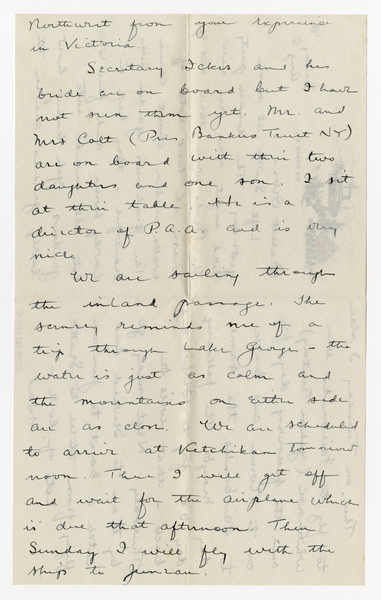 Northwest from your experience
in Victoria.
Secretary Ickes and his
bride are on board but I have
not seen them yet. Mr. and
Mrs Colt (Pres. Bankers Trust NY)
are on board with their two
daughters and one son. I sit
at their table. He is a
director of P.A.A. and is very
nice.
We are sailing through
the inland passage. The
scenery reminds me of a
trip through Lake George - the
water is just as calm and
the mountains on either side
are as close. We are scheduled
to arrive at Ketchikan tomorrow
noon. There I will get off
and wait for the airplane which
is due that afternoon. Then
Sunday I will fly with the
ship to Juneau.